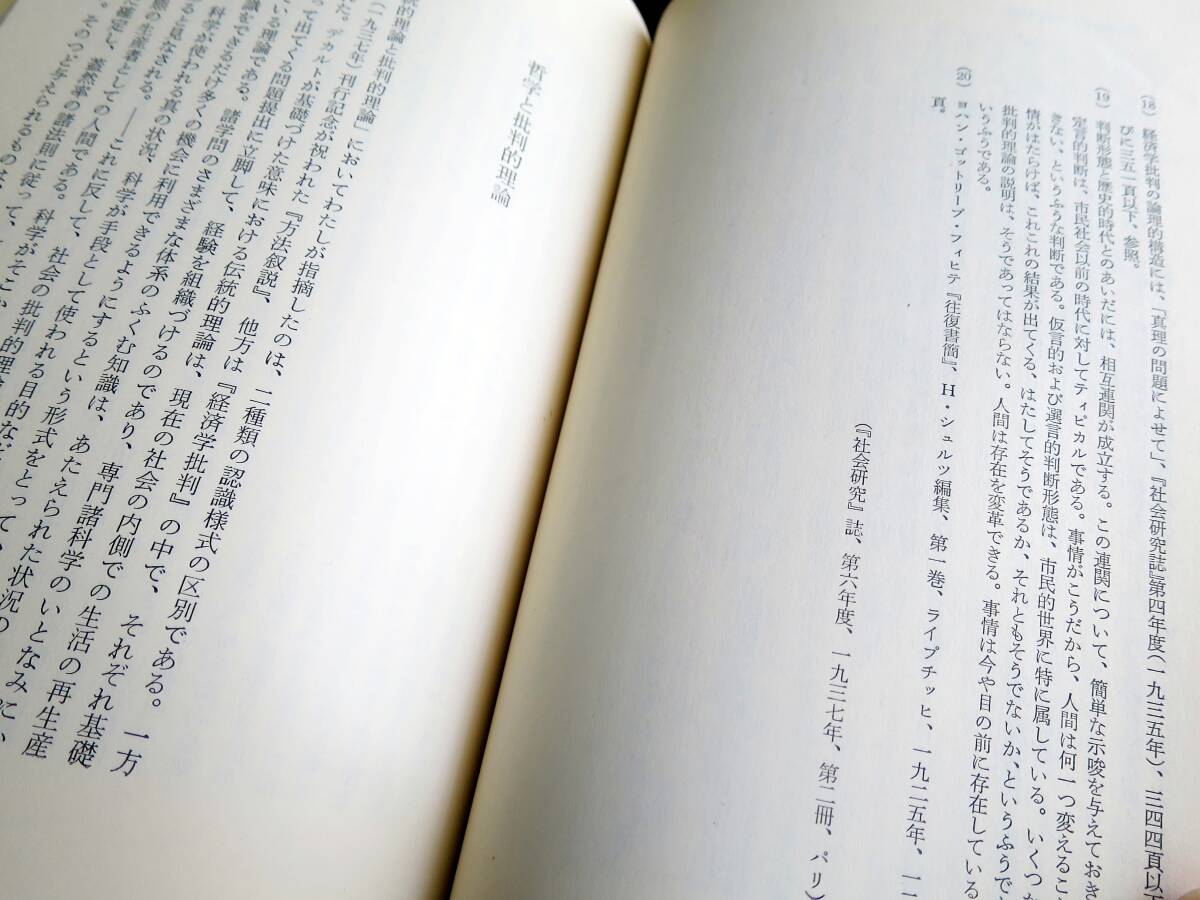 (18) 経済学批判の論理的構造には、「真理の問題によせて」、『社会研究誌』第四年度(一九三五年)、三四四頁以下
びに三五一頁以下、参照。
(19) 判断形態と歴史的時代とのあいだには、相互連関が成立する。この連関について、簡単な示唆を与えておき
定言的判断は、市民社会以前の時代に対してティピカルである。事情がこうだから、人間は何一つ変えるこ
きない、というふうな判断である。仮言的および選言的判断形態は、市民的世界に特に属している。いくつか
情がはたらけば、これこれの結果が出てくる、はたしてそうであるか、それともそうでないか、というふうで
批判的理論の説明は、そうであってはならない。人間は存在を変革できる。事情は今や目の前に存在している
いうふうである。
(20) ヨハン・ゴットリープ・フィヒテ『往復書簡』、H・シュルツ編集、第一巻、ライプチッヒ、一九二五年、一
頁。
(『社会研究』誌、第六年度、一九三七年、第二冊、パリ)
哲学と批判的理論
統的理論と批判的理論」においてわたしが指摘したのは、二種類の認識様式の区別である。一方
(一九三七年)刊行記念が祝われた『方法叙説』、他方は『経済学批判』の中で、それぞれ基礎
た。デカルトが基礎づけた意味における伝統的理論は、現在の社会の内側での生活の再生産
って出てくる問題提出に立脚して、経験を組織づけるのであり、専門諸科学のいとなみに、
いる理論である。諸学問のさまざまな体系のふくむ知識は、あたえられた状況の
識をできるだけ多くの機会に利用できるようにするという形式をとって、
科学が使われる真の状況、科学が手段として使われる目的など
ると見なされる。――これに反して、社会の批判的理
態の生産者としての人間である。科学がそこか
を確定し、蓋然率の諸法則に従って
そのつど与えられるものは、